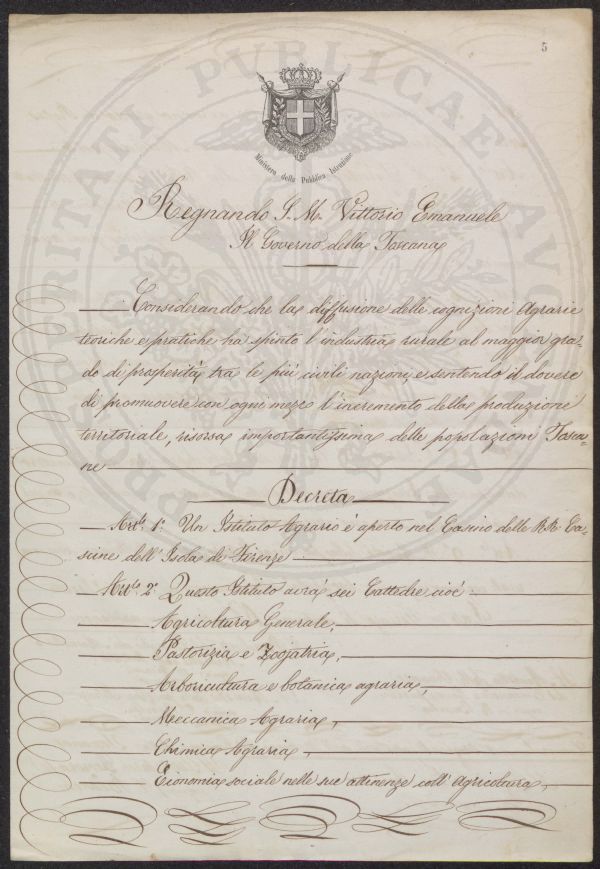 5
Ministero della Pubblica Istruzione
Regnando S. M. Vittorio Emanuele
Il Governo della Toscana
Considerando che la diffusione delle cognizioni Agrarie
teoriche e pratiche ha spinto l'industria rurale al maggior gra-
do di prosperità tra le più civili nazioni, e sentendo il dovere
di promuovere con ogni mezzo l'incremento della produzione
territoriale, risorsa importantissima delle popolazioni Tosca-
ne
Decreta
Art.lo 1.o Un Istituto Agrario è aperto nel Casino delle RR. Ca-
scine dell'Isola di Firenze
Art.lo 2.o Questo Istituto avrà sei Cattedre cioè:
Agricoltura Generale,
Pastorizia e Zoojatria,
Arboricultura e botanica agraria,
Meccanica Agraria,
Chimica Agraria,
Economia sociale nelle sue attinenze coll'Agricoltura,